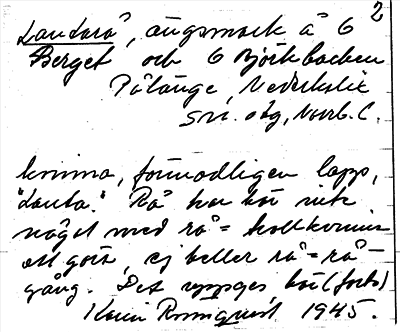 2
Lantarå, ängsmark å 6
Berget och 6 Björkbacken
Pålänge, Nederkalix
sn. o tg, Norrb. l.
kvinna, förmodligen lapp,
"Lanta." Rå har här intet
något med rå = trollkvinna
att göra, ej heller rå = rå-
gång. Det uppges här (forts)
Karin Rosenquist 1945.